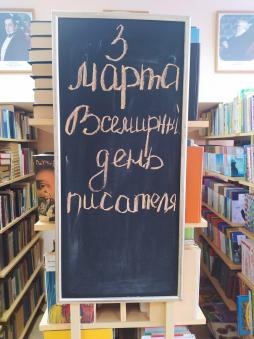 3
марта
Всемирный
день
писателя